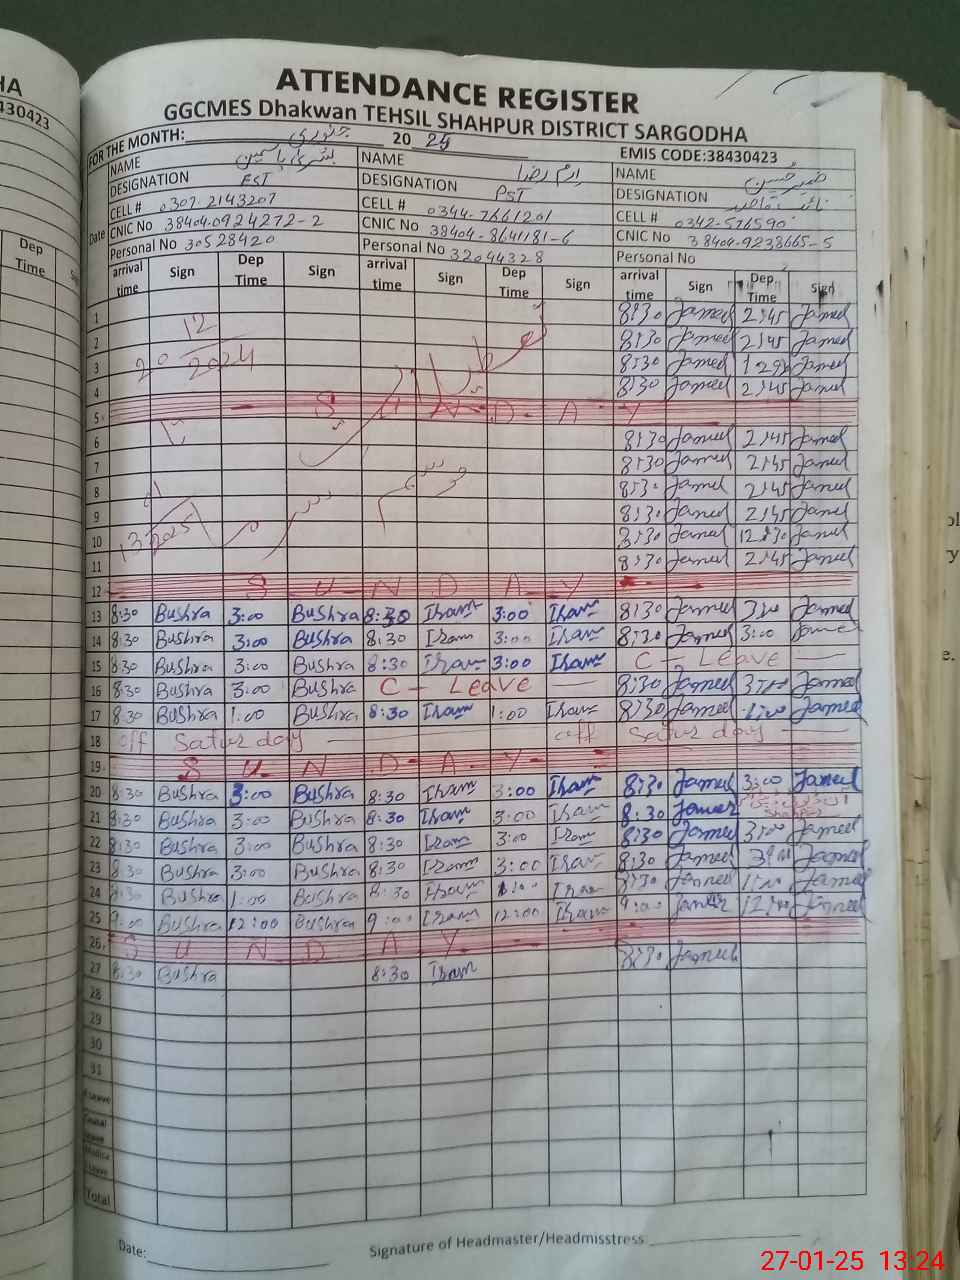 HA
430423
Dep
Time
ATTENDANCE REGISTER
GGCMES Dhakwan TEHSIL SHAHPUR DISTRICT SARGODHA
FOR THE MONTH: جنوری 2025
EMIS CODE:38430423
NAME بشریٰ یاسمین NAME ارم رضا NAME
DESIGNATION EST DESIGNATION PST DESIGNATION نائب قاصد
CELL # 0307-2143207 CELL # 0344-7661201 CELL # 0342-576590
Date CNIC No 38404-0924272-2 CNIC No 38404-8641181-6 CNIC No 38404-9238665-5
Personal No 30528420 Personal No 32044328 Personal No
arrival time Sign Dep Time Sign arrival time Sign Dep Time Sign arrival time Sign Dep Time Sign
1 8:30 Jameel 2:45 Jameel
2 8:30 Jameel 2:45 Jameel
3 8:30 Jameel Jameel
4 8:30 Jameel 2:45 Jameel
20 12 2024
تعطیلات
5 S-U-N-D-A-Y
6 8:30 Jameel 2:45 Jameel
7 8:30 Jameel 2:45 Jameel
8 8:30 Jameel 2:45 Jameel
9 8:30 Jameel 2:45 Jameel
10 8:30 Jameel 12:30 Jameel
11 8:30 Jameel 2:45 Jameel
موسم سرما
12 S U N D A Y
13 8:30 Bushra 3:00 Bushra 8:30 Iram 3:00 Iram 8:30 Jameel 3:00 Jameel
14 8:30 Bushra 3:00 Bushra 8:30 Iram 3:00 Iram 8:30 Jameel 3:00 Jameel
15 8:30 Bushra 3:00 Bushra 8:30 Iram 3:00 Iram C - Leave
16 8:30 Bushra 3:00 Bushra C - Leave 8:30 Jameel 3:00 Jameel
17 8:30 Bushra 1:00 Bushra 8:30 Iram 1:00 Iram 8:30 Jameel 1:00 Jameel
18 off Saturday off Saturday
19 S U N D A Y
20 8:30 Bushra 3:00 Bushra 8:30 Iram 3:00 Iram 8:30 Jameel 3:00 Jameel
21 8:30 Bushra 3:00 Bushra 8:30 Iram 3:00 Iram 8:30 Jameel Shahpur
22 8:30 Bushra 3:00 Bushra 8:30 Iram 3:00 Iram 8:30 Jameel 3:00 Jameel
23 8:30 Bushra 3:00 Bushra 8:30 Iram 3:00 Iram 8:30 Jameel 3:00 Jameel
24 8:30 Bushra 1:00 Bushra 8:30 Iram 1:00 Iram 8:30 Jameel 1:00 Jameel
25 9:00 Bushra 12:00 Bushra 9:00 Iram 12:00 Iram 9:00 Jameel 12:00 Jameel
26 S U N D A Y
27 8:30 Bushra 8:30 Iram 8:30 Jameel
28
29
30
31
Leave
Casual Leave
Medical Leave
Total
Date: Signature of Headmaster/Headmisstress
27-01-25 13:24